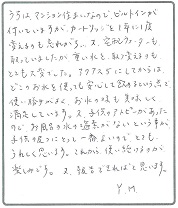 うちは、マンション住まいなので、ビルトインが
付いているのですが、カートリッジを1年に1度
変えるのも忘れがち…。又、宅配ウォーターも
取っていましたが重い水と、取り変えるのも
とても大変でした。アクアスに してからは、
どこのお水を使っても安心して飲めるという点で
使い始めてみると、お水の味も美味しく
満足しています。又、子供のアトピーがあった
ので お風呂の水も塩素がないという事が
子供の肌にとって一番よいので とても
うれしく思います。これから、使い続けるのが
楽しみです。 又、報告できればと思います。
Y.M